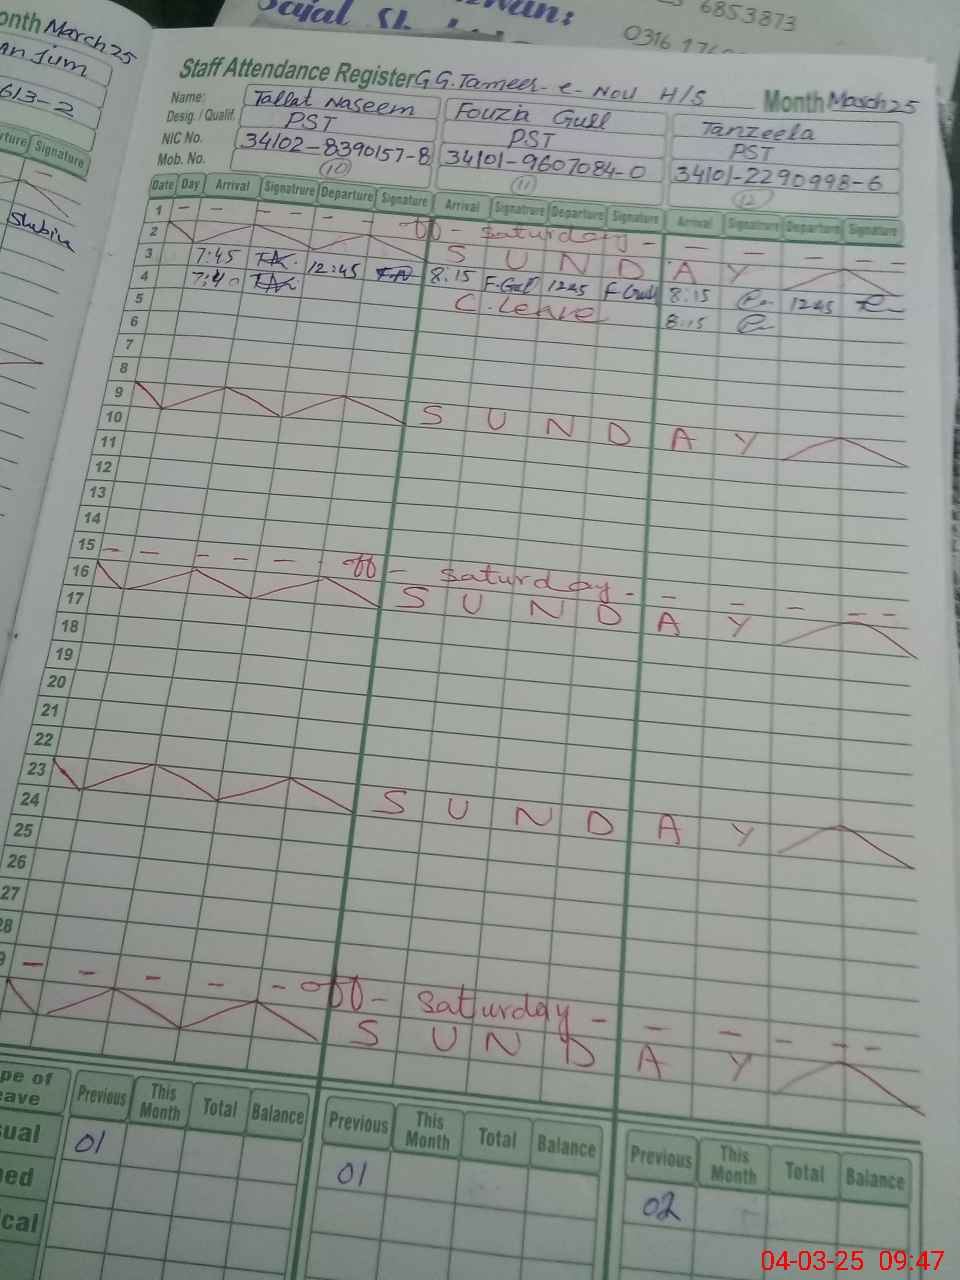 6853873
onth March 25
Staff Attendance Register G.G. Tameer-e-Nou H/S Month March 25
Name: Tallat Naseem Fouzia Gull Tanzeela
Desig. / Qualif. PST PST PST
NIC No. 34102-8390157-8 34101-9607084-0 34101-2290998-6
Mob. No. 10 11 12
613-2
rture Signature
Date Day Arrival Signatrure Departure Signature Arrival Signatrure Departure Signature Arrival Signatrure Departure Signature
1 - - - - - off - Saturday - - - - -
2 S U N D A Y
3 7:45 12:45 8:15 F.Gull 1245 F Gull 8:15 1245
4 7:40 C. Leave 8:15
5
6
7
8
9 S U N D A Y
10
11
12
13
14
15 - - - - - off - Saturday - - - - - -
16 S U N D A Y
17
18
19
20
21
22
23 S U N D A Y
24
25
26
27
28
9 - - - - - off - Saturday - - - - - -
S U N D A Y
pe of eave Previous This Month Total Balance Previous This Month Total Balance Previous This Month Total Balance
sual 01 01 02
ned
ical
04-03-25 09:47